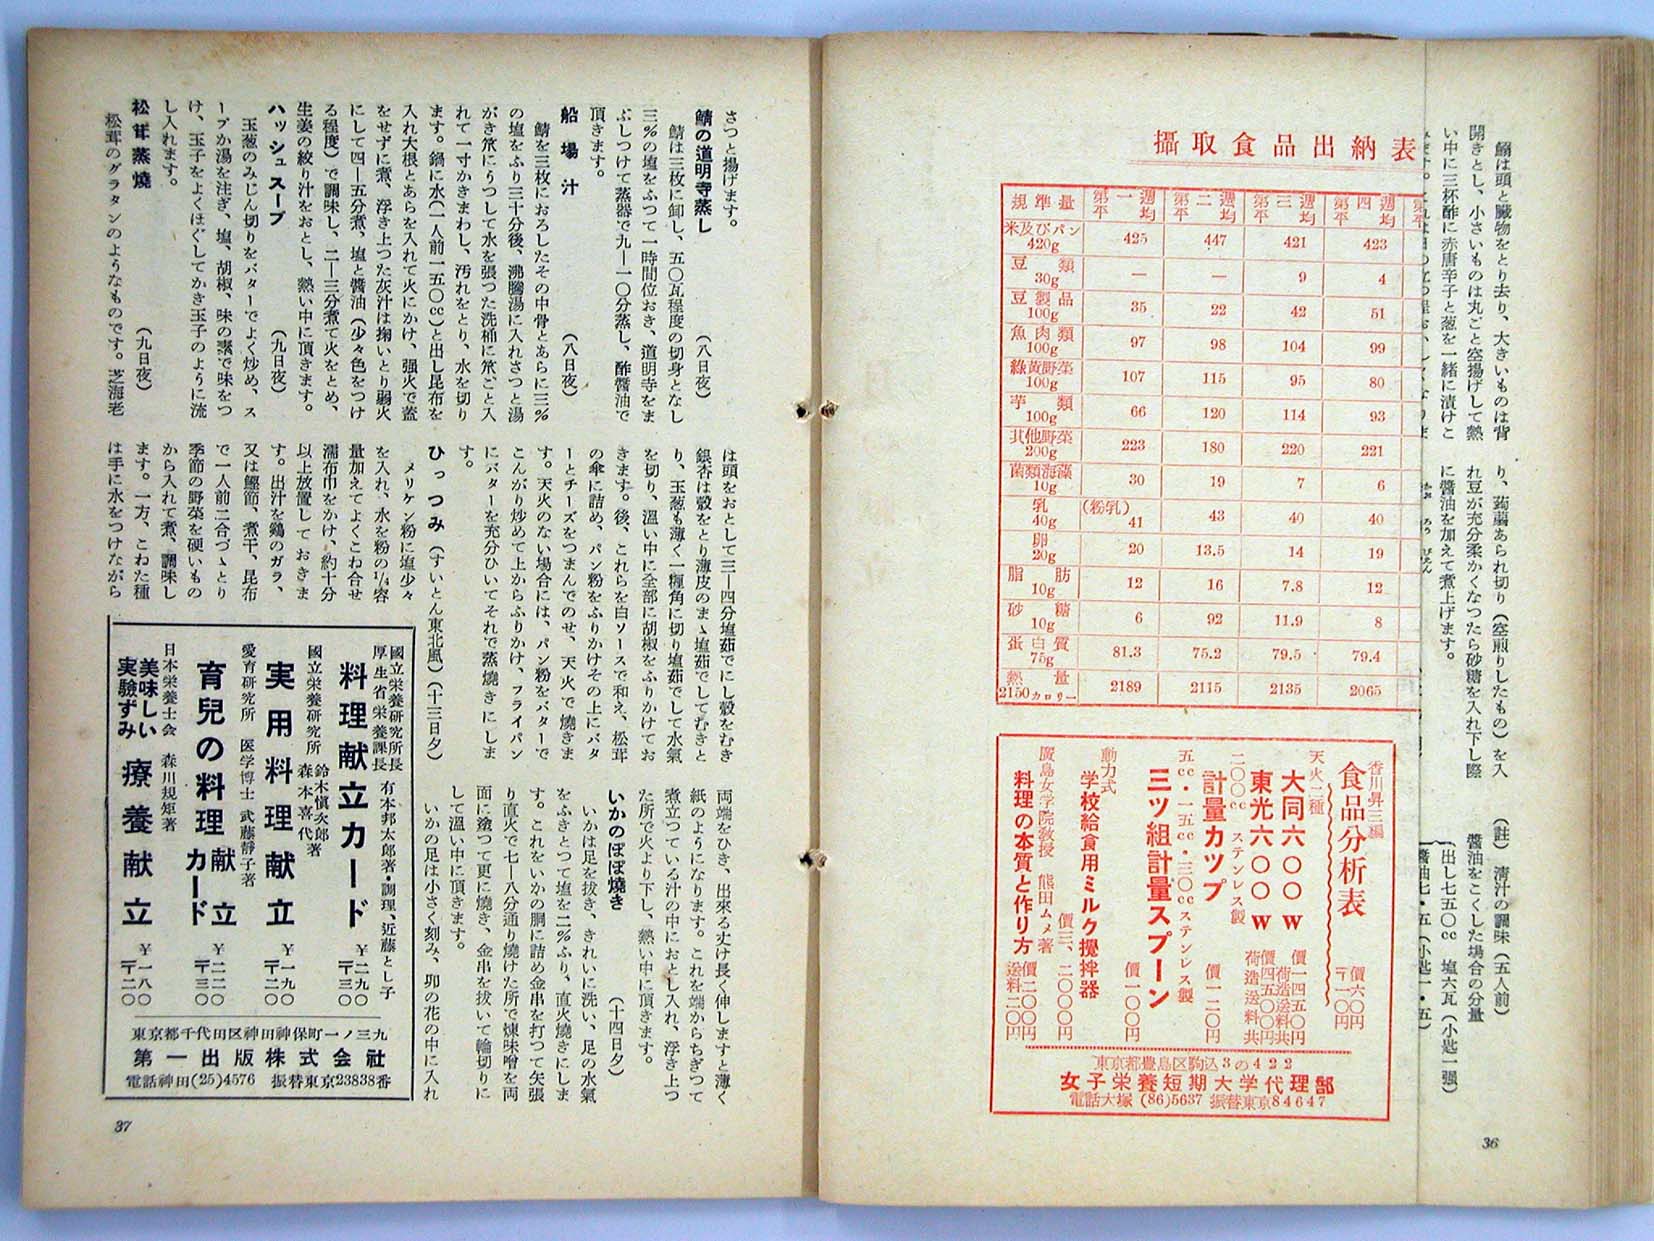 鰯は頭と臓物をとり去り、大きいものは背
開きとし、小さいものは丸ごと空揚げして熱
い中に三杯酢に赤唐辛子と葱を一緒に漬けこ
り、蒟蒻あられ切り(空煎りしたもの)を入
れ豆が充分柔かくなつたら砂糖を入れ下し際
に醬油を加えて煮上げます。
(註) 清汁の調味(五人前)
醬油をこくした場合の分量
(出し七五〇cc 塩六瓦(小匙一强)
醬油七・五(小匙一・五)
攝取食品出納表
規準量 第一週平均 第二週平均 第三週平均 第四週平均
米及びパン 420g 425 447 421 423
豆類 30g — — 9 4
豆製品 100g 35 22 42 51
魚肉類 100g 97 98 104 99
綠黃野菜 100g 107 115 95 80
芋類 100g 66 120 114 93
其他野菜 200g 223 180 220 221
菌類海藻 10g 30 19 7 6
乳 40g (粉乳) 41 43 40 40
卵 20g 20 13.5 14 19
脂肪 10g 12 16 7.8 12
砂糖 10g 6 92 11.9 8
蛋白質 75g 81.3 75.2 79.5 79.4
熱量 2150カロリー 2189 2115 2135 2065
香川昇三編
食品分析表 價六〇〇円 〒一〇〇円
天火二種
大同六〇〇W 價一四五〇円 荷造送料共
東光六〇〇W 價四五〇〇円 荷造送料共
二〇〇cc ステンレス製
計量カツプ 價一二〇円
五cc・一五cc・三〇ccステンレス製
三ツ組計量スプーン 價一〇〇円
動力式
学校給食用ミルク攪拌器 價三二、〇〇〇円
廣島女学院敎授 熊田ムメ著
料理の本質と作り方 價二〇〇円 送料二〇円
東京都豊島区駒込3の422
女子栄養短期大学代理部
電話大塚(86)5637 振替東京84647
36
さつと揚げます。
鯖の道明寺蒸し (八日夜)
鯖は三枚に卸し、五〇瓦程度の切身となし
三%の塩をふつて一時間位おき、道明寺をま
ぶしつけて蒸器で九—一〇分蒸し、酢醬油で
頂きます。
船場汁 (八日夜)
鯖を三枚におろしたその中骨とあらに三%
の塩をふり三十分後、沸騰湯に入れさつと湯
がき笊にうつして水を張つた洗桶に笊ごと入
れて一寸かきまわし、汚れをとり、水を切り
ます。鍋に水(一人前一五〇cc)と出し昆布を
入れ大根とあらを入れて火にかけ、强火で蓋
をせずに煮、浮き上つた灰汁は掬いとり弱火
にして四—五分煮、塩と醬油(少々色をつけ
る程度)で調味し、二—三分煮て火をとめ、
生姜の絞り汁をおとし、熱い中に頂きます。
ハッシュスープ (九日夜)
玉葱のみじん切りをバターでよく炒め、ス
ープか湯を注ぎ、塩、胡椒、味の素で味をつ
け、玉子をよくほぐしてかき玉子のように流
し入れます。
松茸蒸燒 (九日夜)
松茸のグラタンのようなものです。芝海老
は頭をおとして三—四分塩茹でにし殻をむき
銀杏は殻をとり薄皮のまゝ塩茹でしてむきと
り、玉葱も薄く一糎角に切り塩茹でして水氣
を切り、温い中に全部に胡椒をふりかけてお
きます。後、これらを白ソースで和え、松茸
の傘に詰め、パン粉をふりかけその上にバタ
ーとチーズをつまんでのせ、天火で燒きま
す。天火のない場合には、パン粉をバターで
こんがり炒めて上からふりかけ、フライパン
にバターを充分ひいてそれで蒸燒きにしま
す。
ひっつみ(すいとん東北風)(十三日夕)
メリケン粉に塩少々
を入れ、水を粉の1/4容
量加えてよくこね合せ
濡布巾をかけ、約十分
以上放置しておきま
す。出汁を鷄のガラ、
又は鰹節、煮干、昆布
で一人前二合づゝとり
季節の野菜を硬いもの
から入れて煮、調味し
ます。一方、こねた種
は手に水をつけながら
両端をひき、出來る丈け長く伸しますと薄く
紙のようになります。これを端からちぎつて
煮立つている汁の中におとし入れ、浮き上つ
た所で火より下し、熱い中に頂きます。
いかのぽぽ燒き (十四日夕)
いかは足を拔き、きれいに洗い、足の水氣
をふきとつて塩を二%ふり、直火燒きにしま
す。これをいかの胴に詰め金串を打つて矢張
り直火で七—八分通り燒けた所で煉味噌を両
面に塗つて更に燒き、金串を拔いて輪切りに
して温い中に頂きます。
いかの足は小さく刻み、卯の花の中に入れ
國立栄養研究所長 有本邦太郎著・調理、近藤とし子
厚生省栄養課長
料理献立カード ¥二九〇 〒三〇
國立栄養研究所 鈴木愼次郎 森本喜代著
実用料理献立 ¥一九〇 〒二〇
愛育研究所 医学博士 武藤靜子著
育兒の料理献立カード ¥二二〇 〒三〇
日本栄養士会 森川規矩著
美味しい実験ずみ 療養献立 ¥一八〇 〒二〇
東京都千代田区神田神保町一ノ三九
第一出版株式会社
電話神田(25)4576 振替東京23838番
37